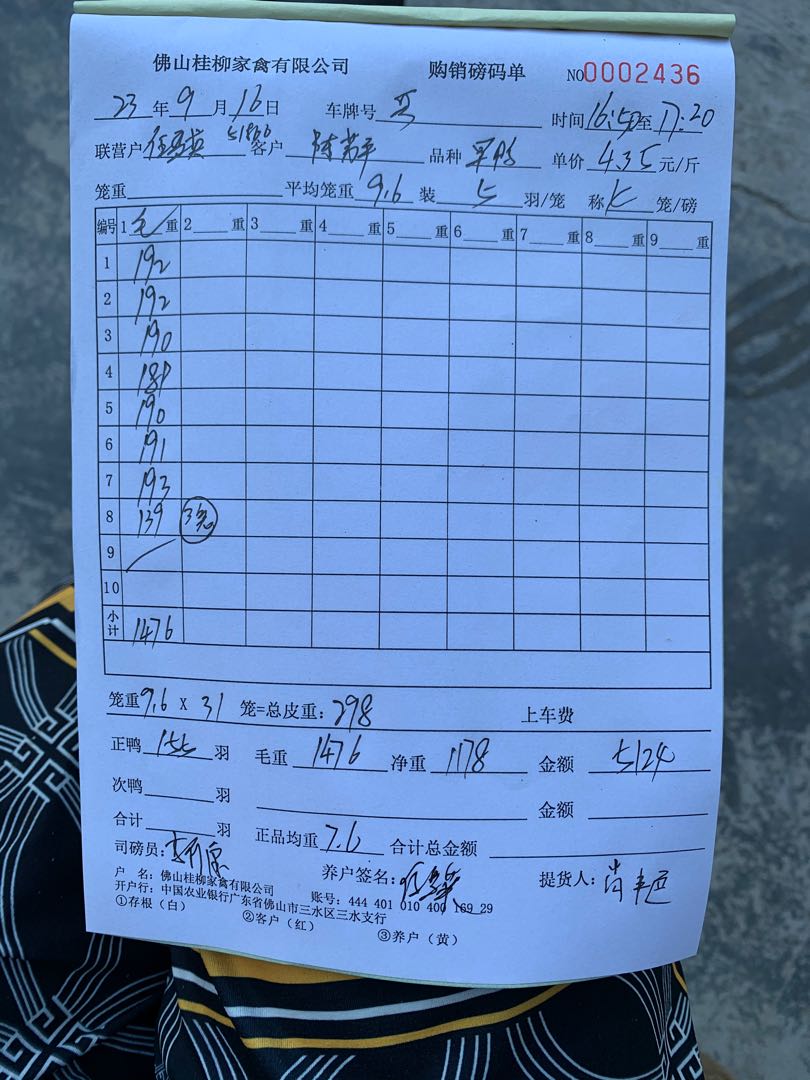 佛山桂柳家禽有限公司 购销磅码单 NO0002436
23年9月16日 车牌号 时间16:50至17:20
联营户 客户 品种 单价4.35元/斤
笼重 平均笼重9.6装5羽/笼 称 笼/磅
编号 1毛重 2 重 3 重 4 重 5 重 6 重 7 重 8 重 9 重
1 192
2 192
3 190
4 189
5 190
6 191
7 193
8 139 3笼
9
10
小计 1476
笼重9.6 x 31 笼=总皮重:298 上车费
正鸭155羽 毛重1476 净重1178 金额5124
次鸭 羽 金额
合计 羽 正品均重7.6 合计总金额
司磅员: 养户签名: 提货人:
户 名:佛山桂柳家禽有限公司
开户行:中国农业银行广东省佛山市三水区三水支行 账号:444 401 010 400 169 29
①存根(白) ②客户(红) ③养户(黄)